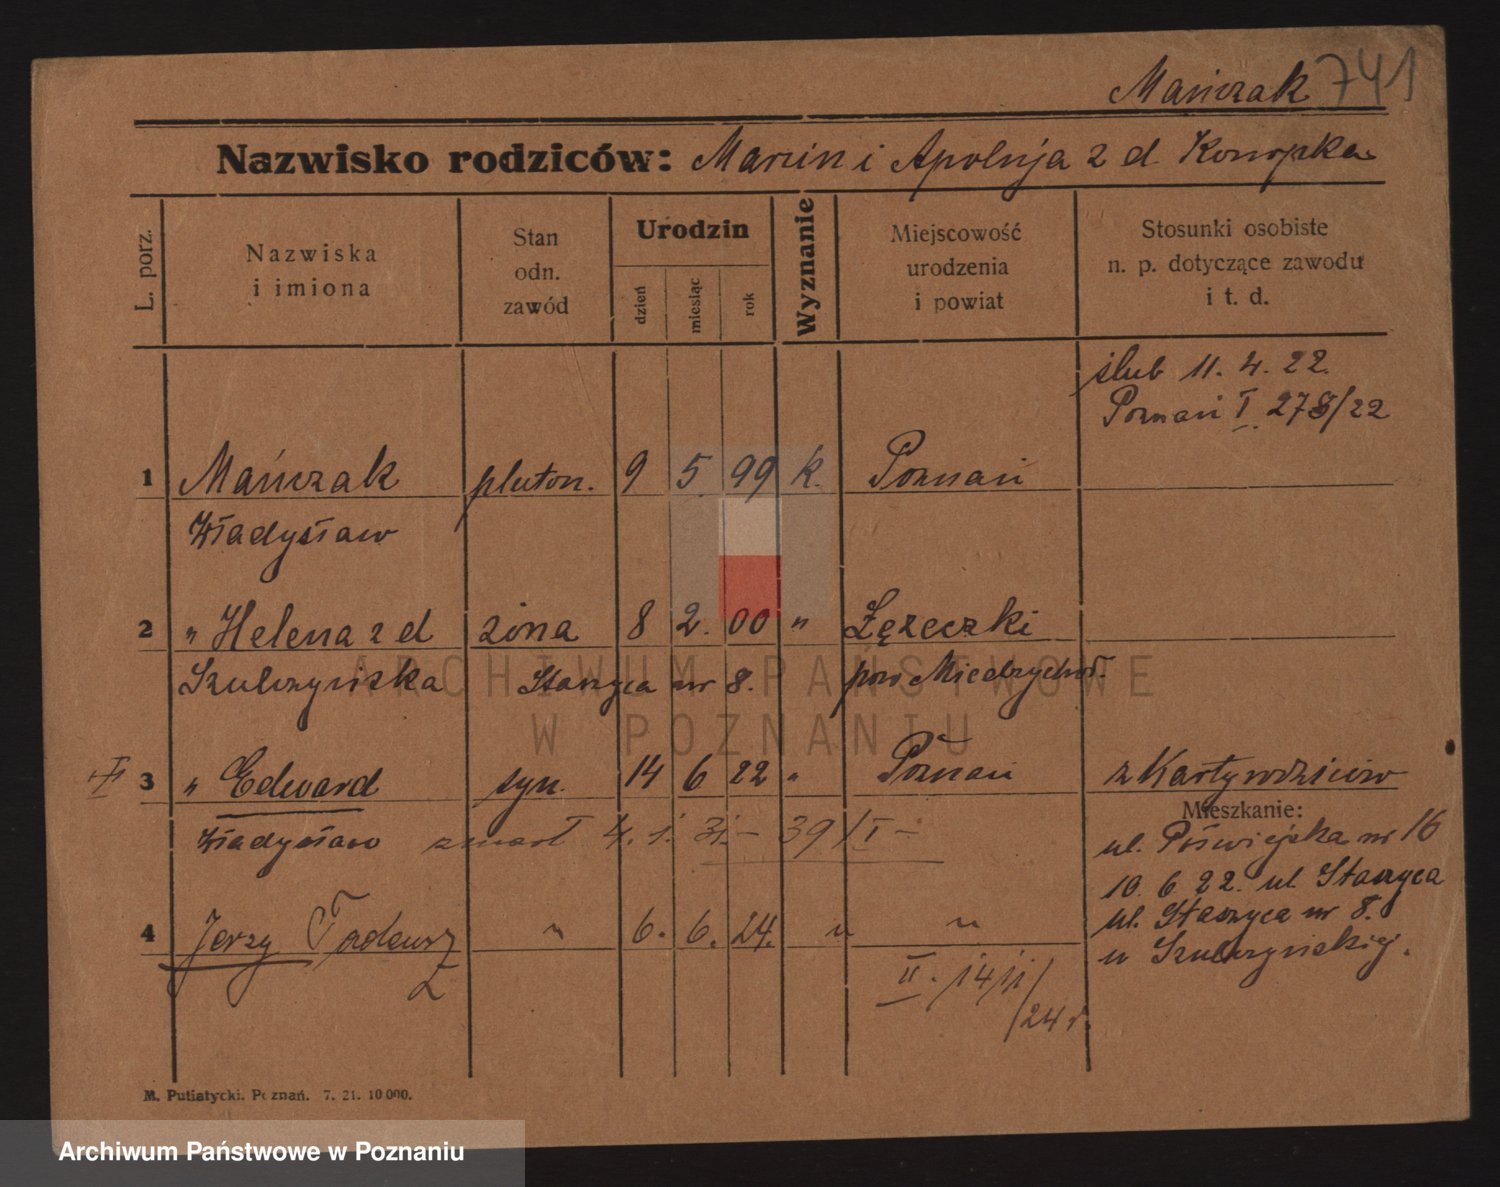 Mańczak 741
Nazwisko rodziców: Marcin i Apolnja z d. Konopka
L. porz.
Nazwiska i imiona
Stan odn. zawód
Urodzin
dzień
miesiąc
rok
Wyznanie
Miejscowość urodzenia i powiat
Stosunki osobiste n. p. dotyczące zawodu i t. d.
ślub 11. 4. 22.
Poznań I. 278/22
1 Mańczak pluton. 9 5. 99 k. Poznań
Władysław
2 " Helena z d żona 8 2. 00 " Łężeczki
Szulczyńska Staszyca nr 8. pow Miedzychod.
3 " Edward syn. 14 6 22 " Poznań z Karty rodziców
Mieszkanie:
Władysław zmarł 4. 1. 31. – 39/I –
ul. Poświejska nr 16
10. 6. 22. ul Staszyca
4 Jerzy Tadeusz " 6. 6. 24. " "
ul. Staszyca nr 8.
u Szulczyńskiej.
II. /14/11/24 r.
M. Putiatycki. Poznań. 7. 21. 10 000.
ARCHIWUM PAŃSTWOWE
W POZNANIU
Archiwum Państwowe w Poznaniu